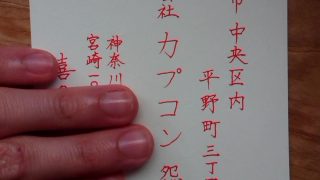 市中央区内
平野町三丁
社カプコン怨
神奈川
宮崎一〇
喜